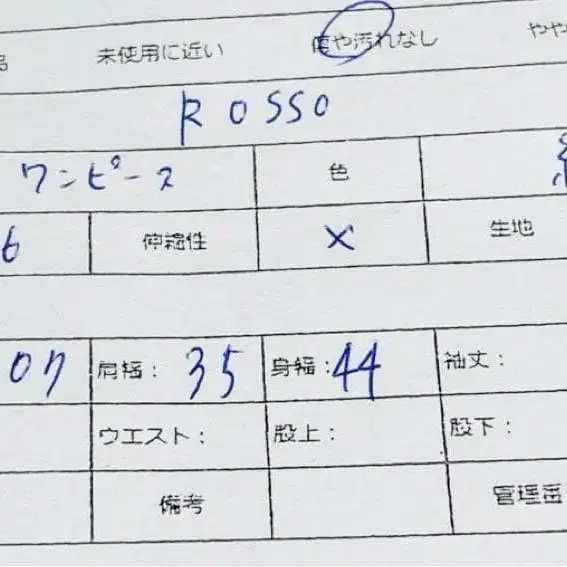 未使用に近い 傷や汚れなし やや
ROSSO
ワンピース 色
6 伸縮性 × 生地
07 肩幅: 35 身幅: 44 袖丈:
ウエスト: 股上: 股下:
備考 管理番